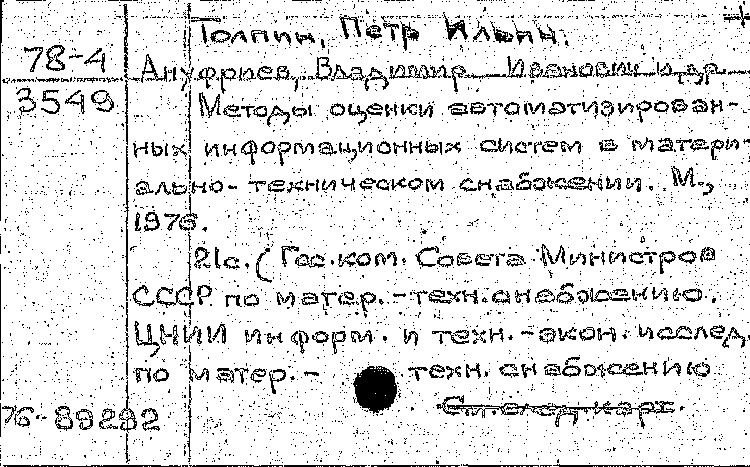 Толпин, Петр Ильич.
78-4
Ануфриев, Владимир Иванович и др
3549
Методы оценки автоматизирован-
ных информационных систем в матери-
ально-техническом снабжении. М.,
1976.
21с. (Гос.ком. Совета Министров
СССР по матер.-техн.снабжению.
ЦНИИ информ. и техн.-экон. исслед.
по матер.- техн. снабжению
См. след карт.
76-89292